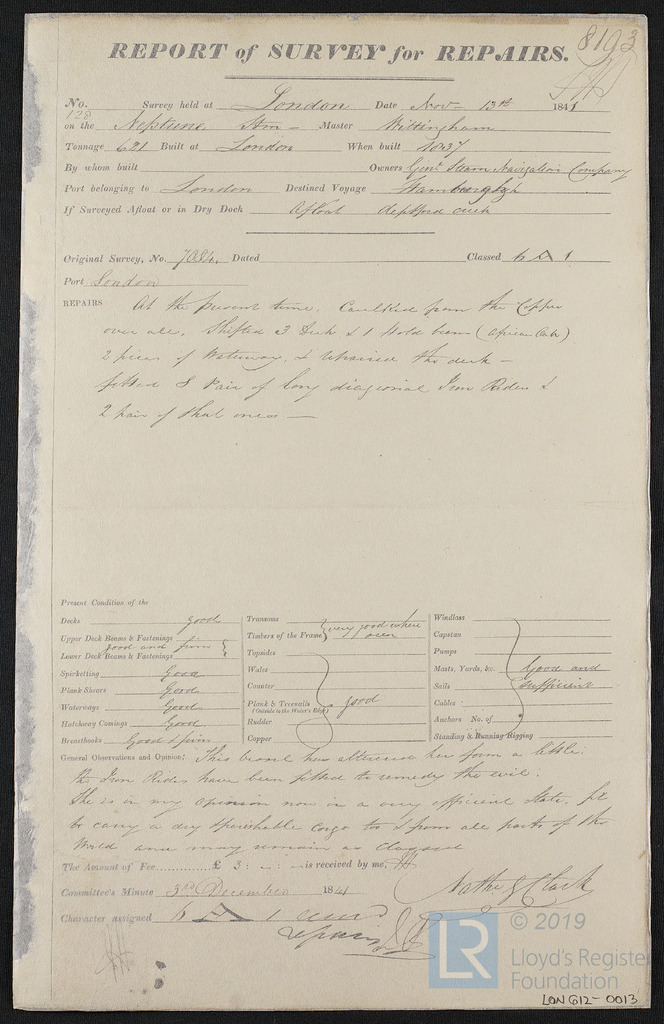 8193
REPORT of SURVEY for REPAIRS.
No. 128 Survey held at London Date Nov 13th 1841
on the Neptune Stm Master Wittingham
Tonnage 621 Built at London When built 1837
By whom built Owners Genl Steam Navigation Company
Port belonging to London Destined Voyage Hamburgh
If Surveyed Afloat or in Dry Dock Afloat deptford
Original Survey, No. 7084 Dated Classed 6 A 1
Port London
REPAIRS At the present time, Caulked from the Copper
over all, Shifted 3 Deck & 1 Hold beam (African Oak)
2 pieces of Waterway, & repaired the deck –
fitted 8 Pair of long diagonal Iron Riders &
2 pair of short ones –
Present Condition of the
Decks good
Upper Deck Beams & Fastenings
good and firm
Lower Deck Beams & Fastenings
Spirketting Good
Plank Shears Good
Waterways Good
Hatchway Comings Good
Breasthooks Good & firm
Transoms
Timbers of the Frame very good where seen
Topsides
Wales
Counter
Plank & Treenails good
(Outside to the Water's Edge)
Rudder
Copper
Windlass
Capstan
Pumps
Masts, Yards, &c. Good and
Sails sufficient
Cables
Anchors No. of
Standing & Running Rigging
General Observations and Opinion: This vessel has altered her form a little.
the Iron Riders have been fitted to remedy the evil.
She is in my opinion now in a very efficient State, fit
to carry a dry & perishable cargo to & from all parts of the
World and may remain as classed
The Amount of Fee £ 3 : – : – is received by me,
Nathl G Clark
Committee's Minute 3rd December 1841
Character assigned 6 A 1
LR
© 2019
Lloyd's Register
Foundation
LON 612-0013